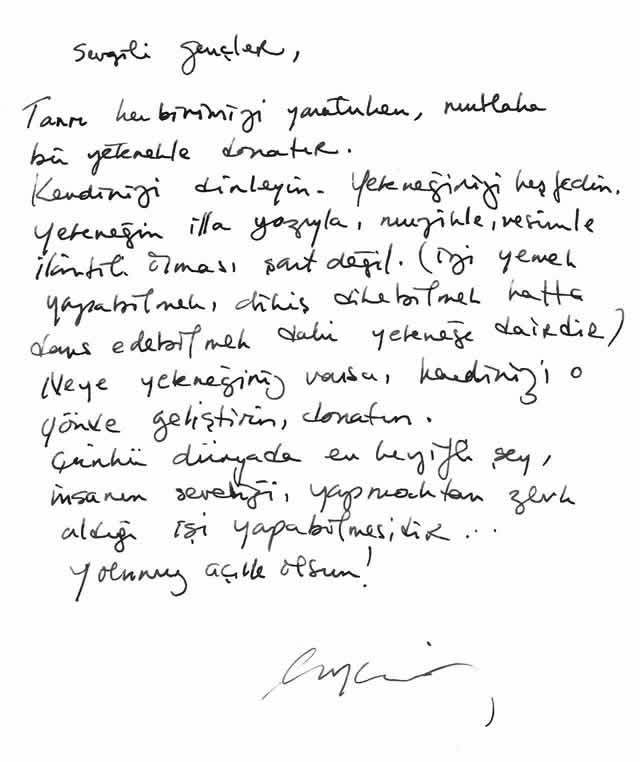 Sevgili gençler,
Tanrı her birimizi yaratırken, mutlaka
bir yetenekle donatır.
Kendinizi dinleyin. Yeteneğinizi keşfedin.
Yeteneğin illa yazıyla, müzikle, resimle
ilintili olması şart değil. (İyi yemek
yapabilmek, dikiş dikebilmek hatta
dans edebilmek dahi yeteneğe dairdir)
Neye yeteneğiniz varsa, kendinizi o
yönde geliştirin, donatın.
Çünkü dünyada en keyifli şey,
insanın sevdiği, yapmaktan zevk
aldığı işi yapabilmesidir...
Yolunuz açık olsun!